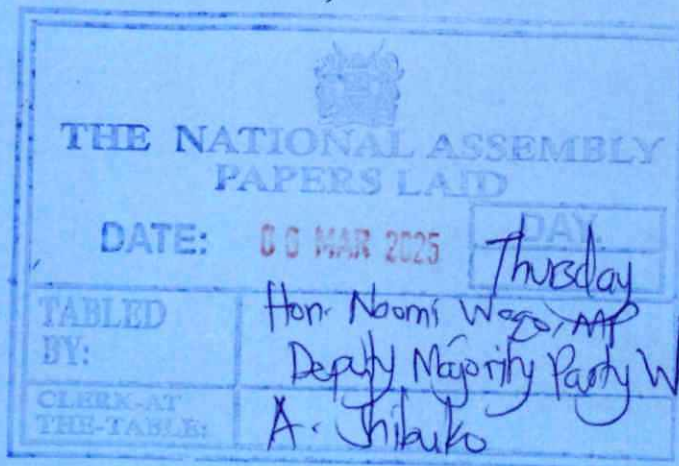 THE NATIONAL ASSEMBLY
PAPERS LAID
DATE: 06 MAR 2025
DAY.
Thursday
TABLED BY:
Hon. Naomi Waqo, MP
Deputy Majority Party W
CLERK-AT THE-TABLE:
A. Shibuko